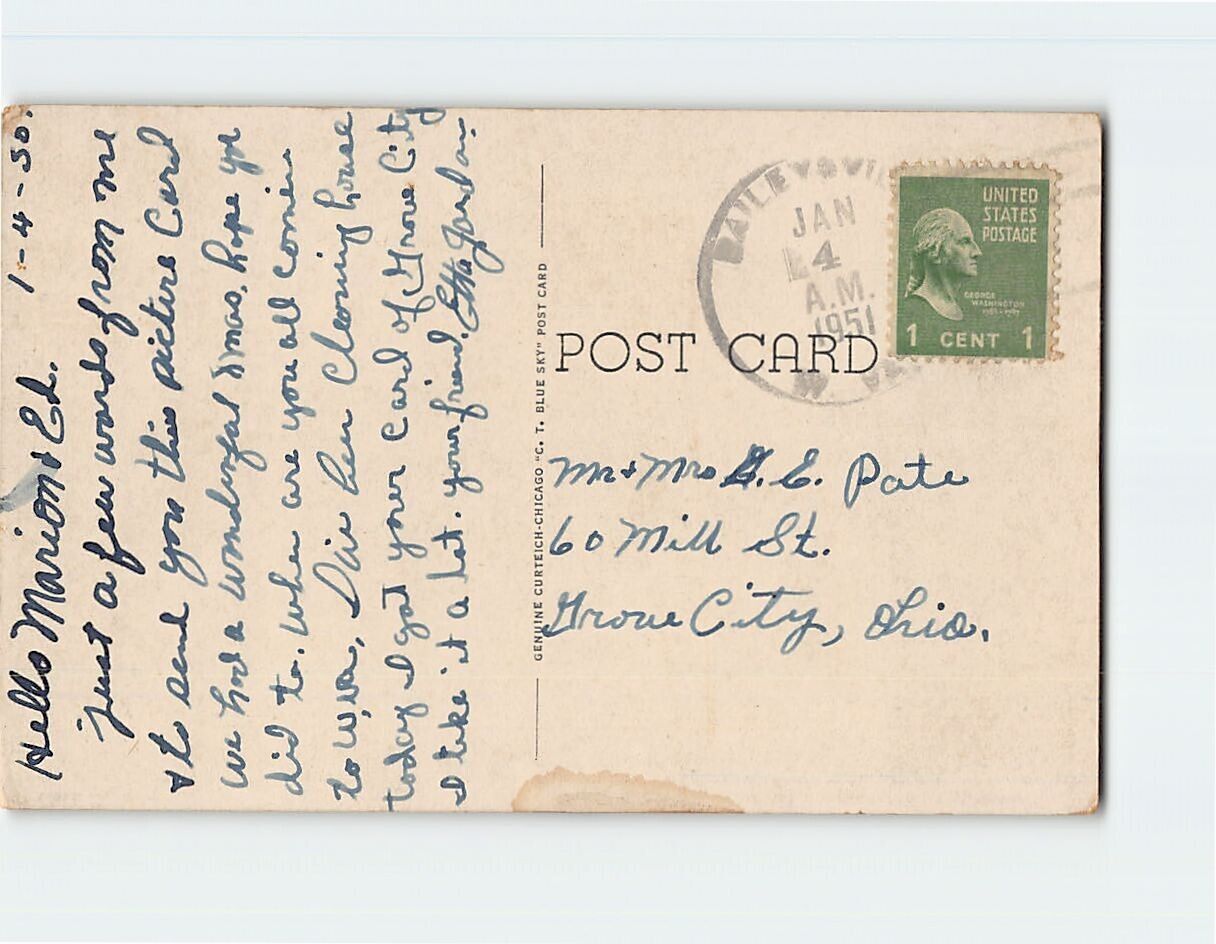 Hello Marion & Ed. 1-4-50.
just a few words from me
& to send you this picture Card
we had a wonderful Xmas, hope you
did to. when are you all comin
to W, va, I've been Cleaning house
today I got your Card of Grove City
I like it a lot. your friend, Etta
GENUINE CURTEICH-CHICAGO "C. T. BLUE SKY" POST CARD
POST CARD
BAILEYSVIL
JAN
4
A.M.
1951
W. VA.
UNITED
STATES
POSTAGE
GEORGE
WASHINGTON
1 CENT 1
Mr + Mrs G. E. Pate
60 Mill St.
Grove City, Ohio.